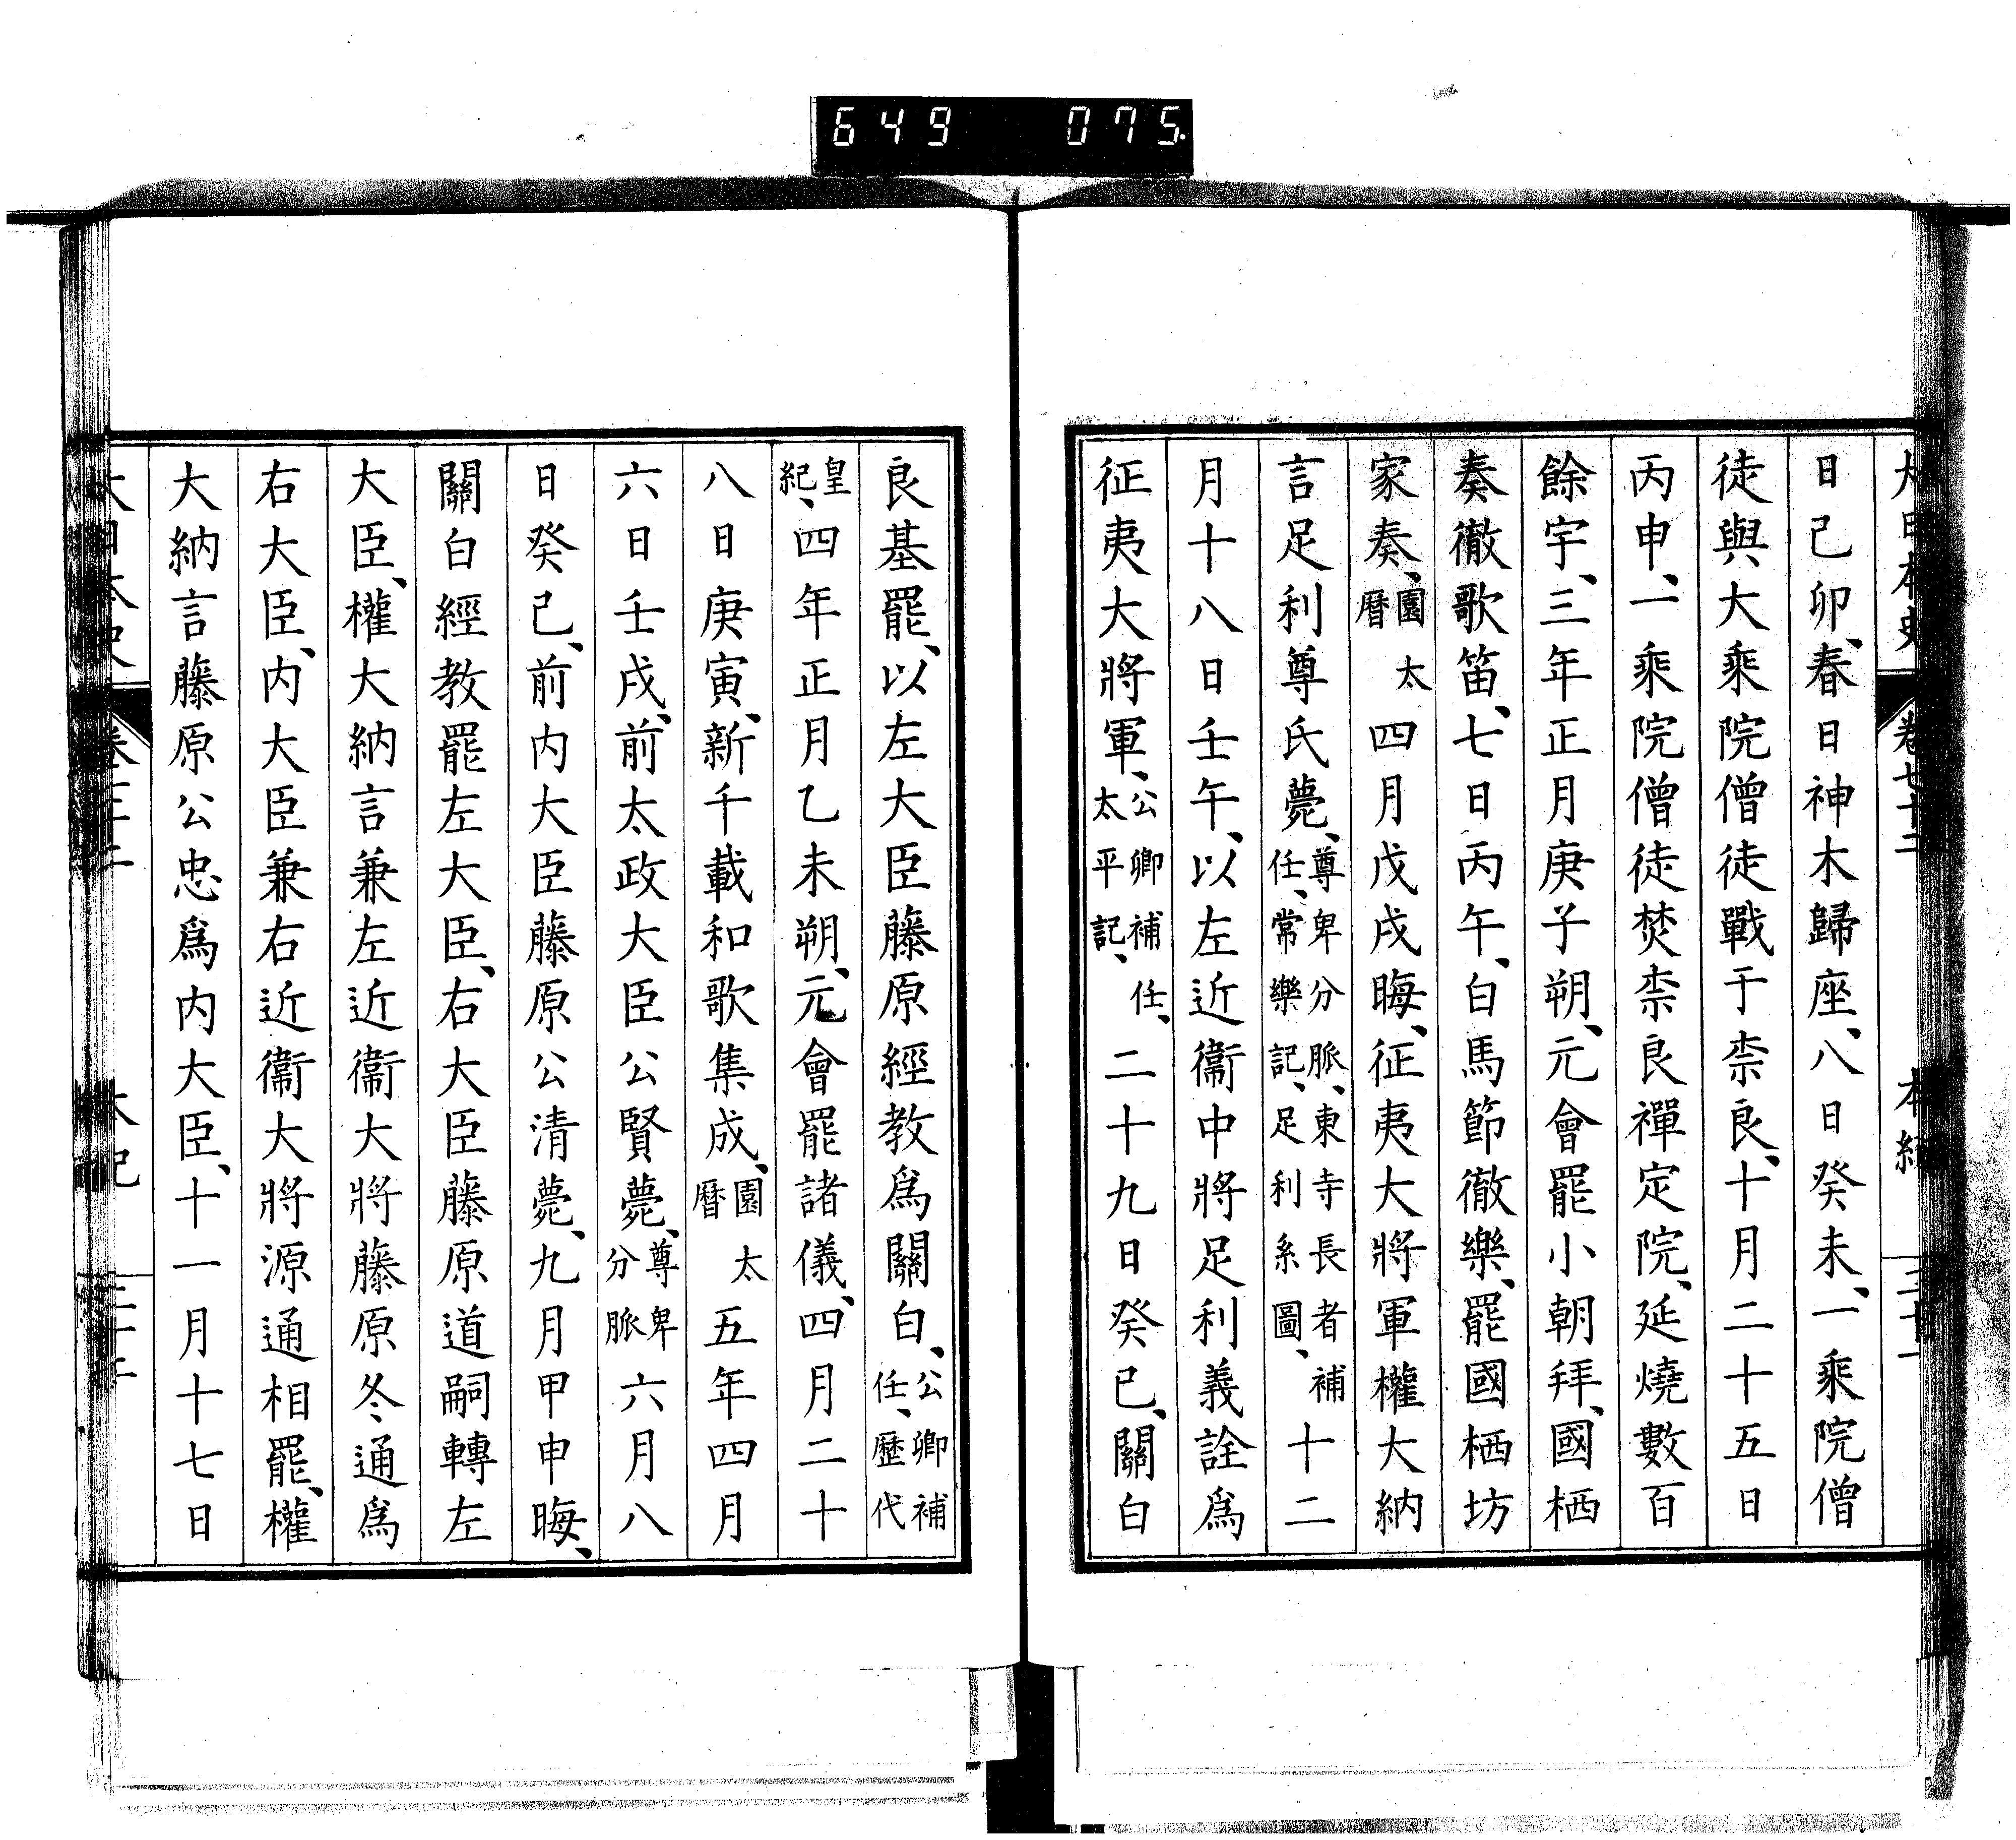 大日本史 卷七十二 本紀
日己卯、春日神木歸座、八日癸未、一乘院僧
徒與大乘院僧徒戰于柰良、十月二十五日
丙申、一乘院僧徒焚柰良禪定院、延燒數百
餘宇、三年正月庚子朔、元會罷小朝拜、國栖
奏徹歌笛、七日丙午、白馬節徹樂、罷國栖坊
家奏、園太暦四月戊戌晦、征夷大將軍權大納
言足利尊氏薨、尊卑分脈、東寺長者補任、常樂記、足利系圖、十二
月十八日壬午、以左近衞中將足利義詮爲
征夷大將軍、公卿補任、太平記、二十九日癸已、關白
良基罷、以左大臣藤原經教爲關白、公卿補任、歷代
皇紀、四年正月乙未朔、元會罷諸儀、四月二十
八日庚寅、新千載和歌集成、園太暦五年四月
六日壬戌、前太政大臣公賢薨、尊卑分脈六月八
日癸己、前内大臣藤原公清薨、九月甲申晦、
關白經教罷左大臣、右大臣藤原道嗣轉左
大臣、權大納言兼左近衞大將藤原冬通爲
右大臣、内大臣兼右近衞大將源通相罷、權
大納言藤原公忠爲内大臣、十一月十七日
649 075